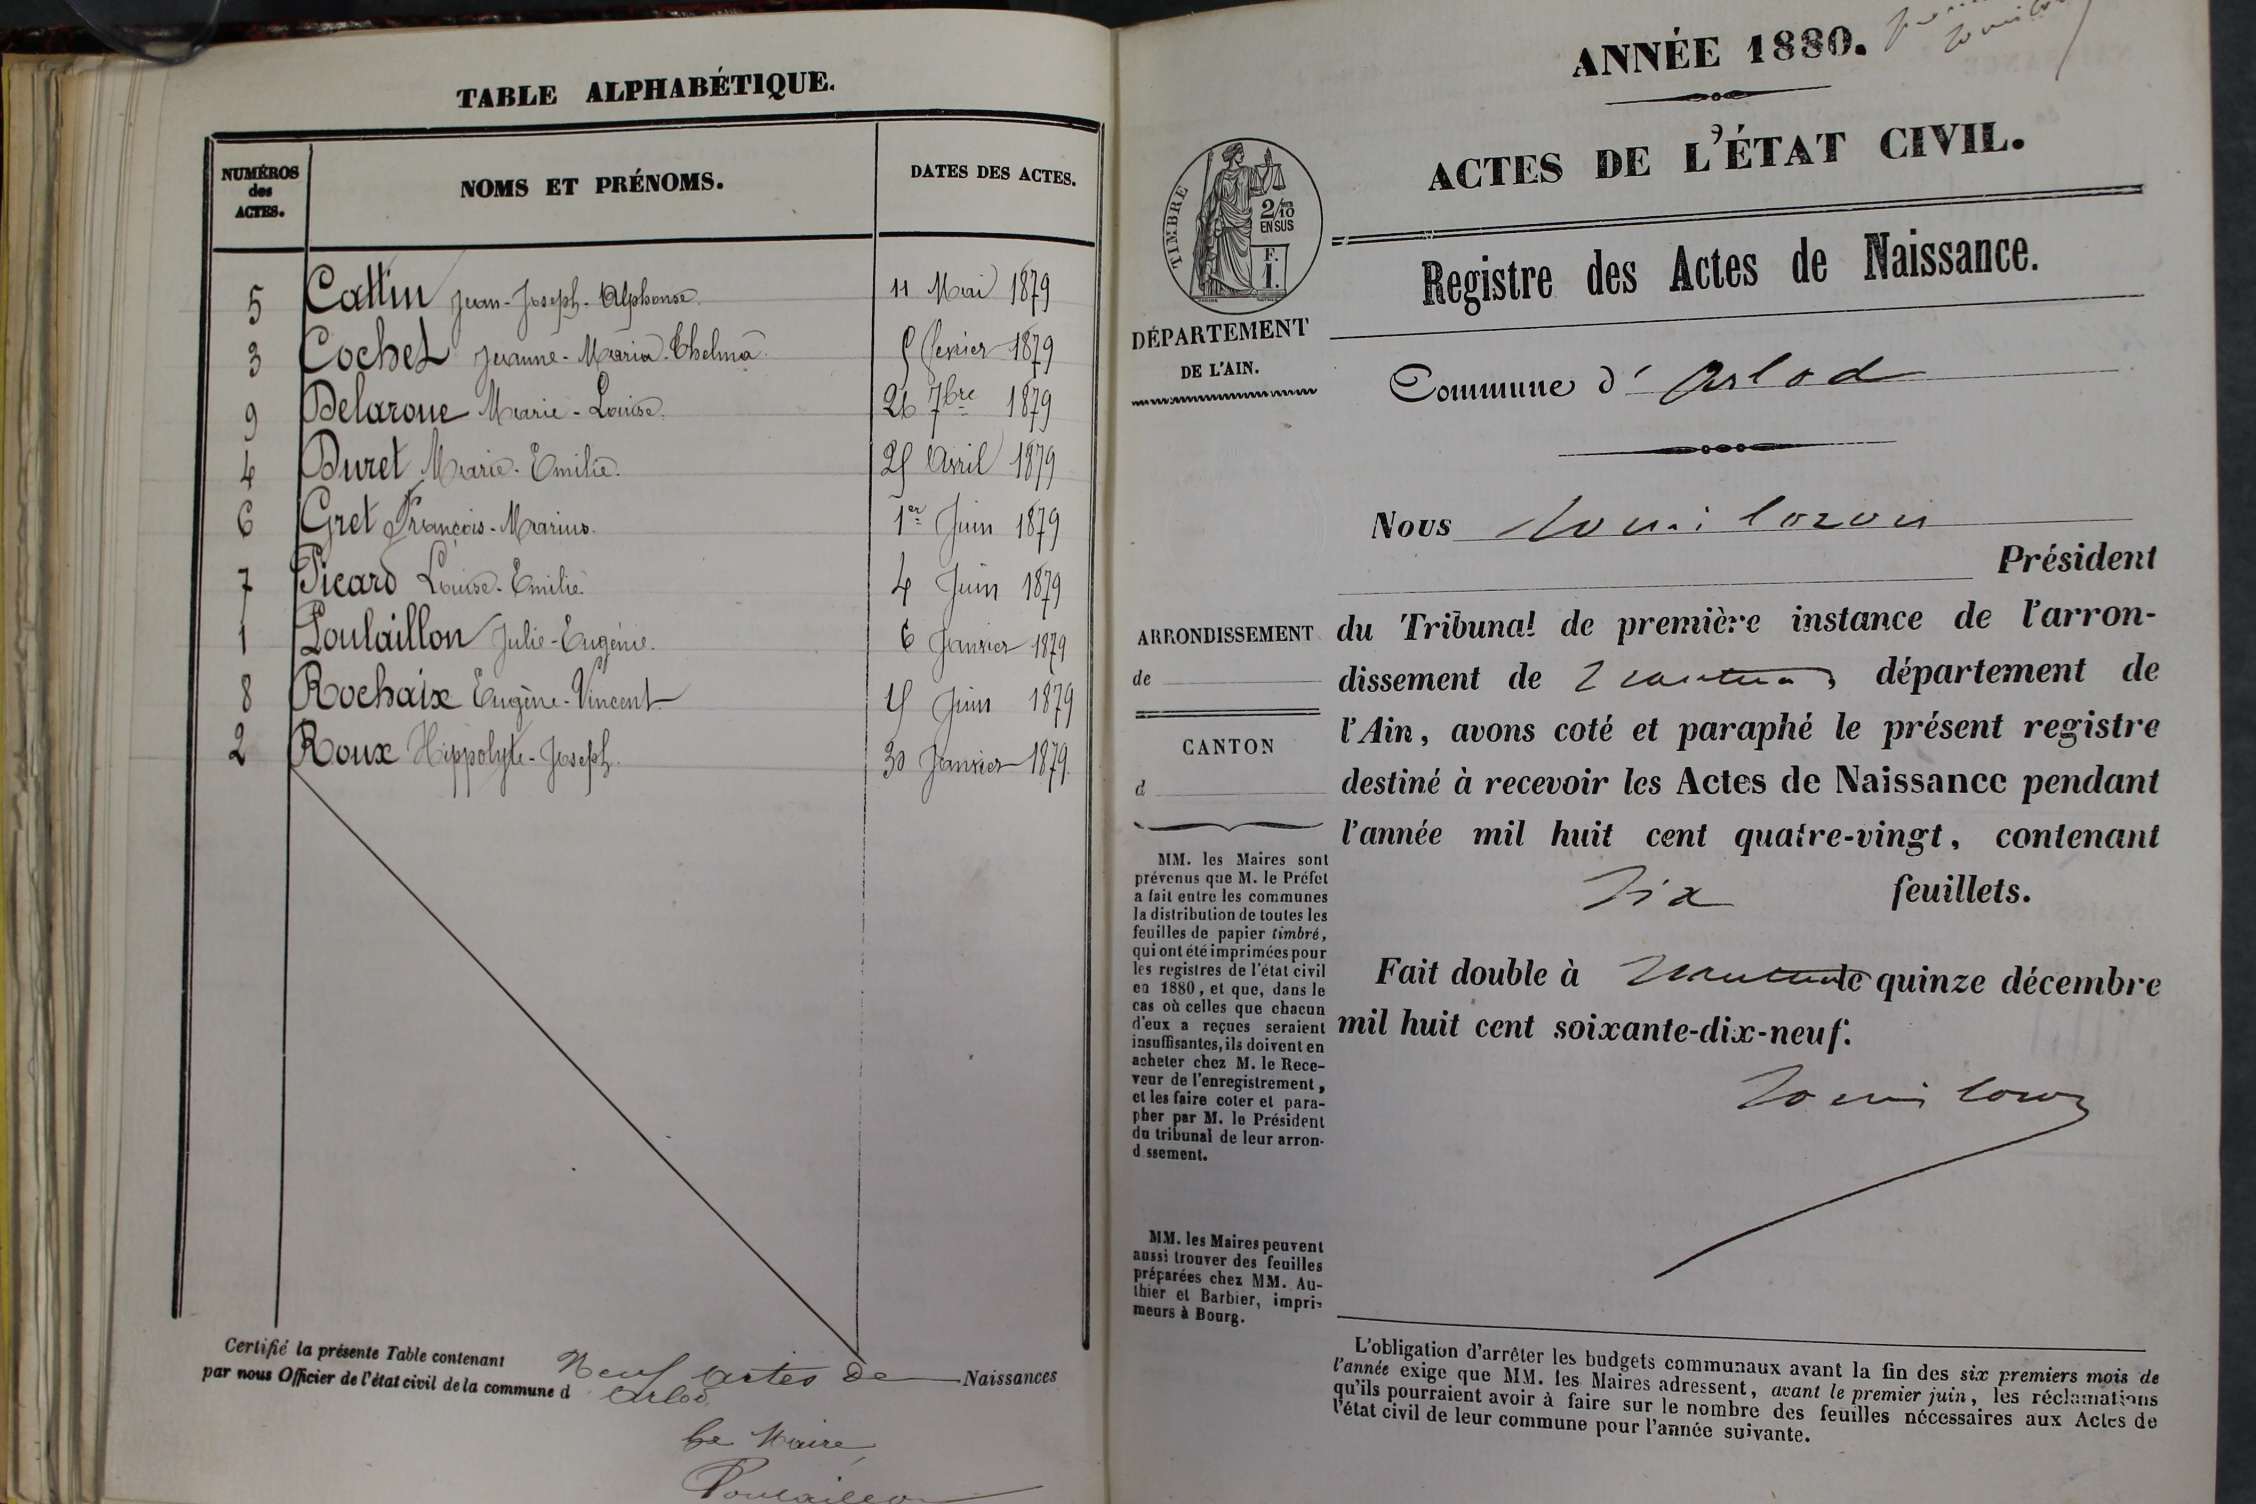 TABLE ALPHABÉTIQUE.
NUMÉROS
des
ACTES.
NOMS ET PRÉNOMS.
DATES DES ACTES.
5 Cattin Jean-Joseph-Alphonse. 11 Mai 1879
3 Cochet Jeanne-Maria-Thelma. 5 février 1879
9 Delaroue Marie-Louise. 26 7bre 1879
4 Duret Marie-Emilie. 25 Avril 1879
6 Gret François-Marius. 1er Juin 1879
7 Picard Louise-Emilie 4 Juin 1879
1 Poulaillon Julie-Eugénie. 6 Janvier 1879
8 Rochaix Eugène-Vincent 15 Juin 1879
2 Roux Hippolyte-Joseph. 30 Janvier 1879.
Certifié la présente Table contenant Neuf actes de Naissances
par nous Officier de l'état civil de la commune d Arlod.
Le Maire,
Poulaillon
ANNÉE 1880.
ACTES DE L'ÉTAT CIVIL.
TIMBRE
2/10
EN SUS
F.
1.
Registre des Actes de Naissance.
DÉPARTEMENT
DE L'AIN.
Commune d' Arlod
Nous
Président
ARRONDISSEMENT
de
CANTON
d
du Tribunal de première instance de l'arron-
dissement de Nantua, département de
l'Ain, avons coté et paraphé le présent registre
destiné à recevoir les Actes de Naissance pendant
l'année mil huit cent quatre-vingt, contenant
Six feuillets.
Fait double à Nantua le quinze décembre
mil huit cent soixante-dix-neuf.
MM. les Maires sont
prévenus que M. le Préfet
a fait entre les communes
la distribution de toutes les
feuilles de papier timbré,
qui ont été imprimées pour
les registres de l'état civil
en 1880, et que, dans le
cas où celles que chacun
d'eux a reçues seraient
insuffisantes, ils doivent en
acheter chez M. le Rece-
veur de l'enregistrement,
et les faire coter et para-
pher par M. le Président
du tribunal de leur arron-
d ssement.
MM. les Maires peuvent
aussi trouver des feuilles
préparées chez MM. Au-
thier et Barbier, impri-
meurs à Bourg.
L'obligation d'arrêter les budgets communaux avant la fin des six premiers mois de
l'année exige que MM. les Maires adressent, avant le premier juin, les réclamations
qu'ils pourraient avoir à faire sur le nombre des feuilles nécessaires aux Actes de
l'état civil de leur commune pour l'année suivante.